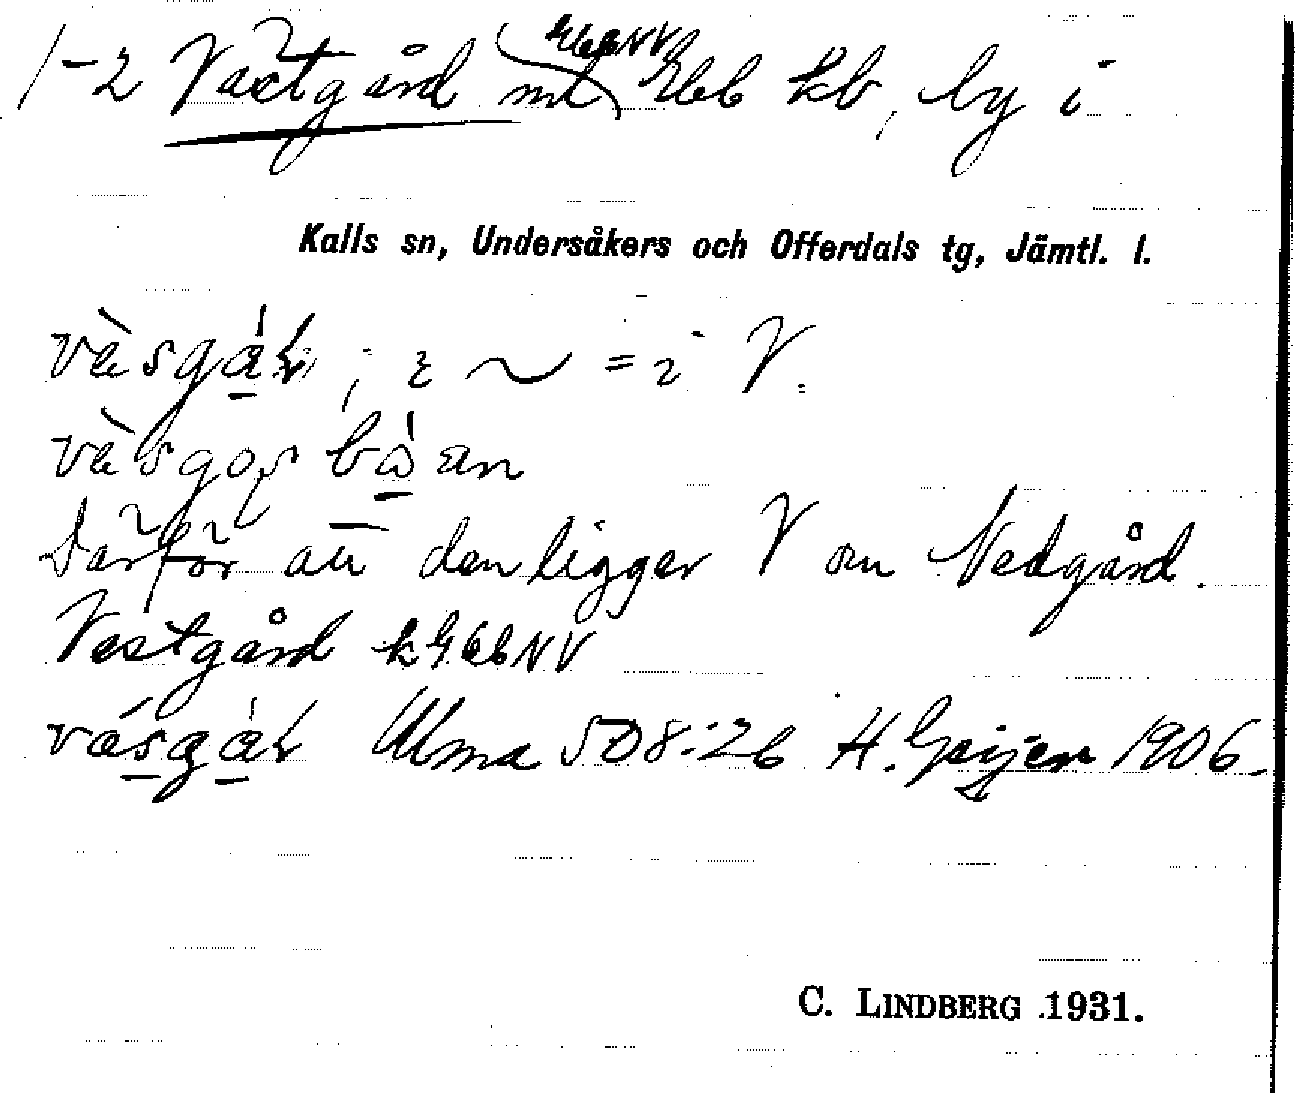 1-2 Västgård nb kb, by i
Kalls sn, Undersåkers och Offerdals tg, Jämtl. l.
vàsgáɽ ; i ~ = i V.
vàsgoṣ bó an
Därför att den ligger V om Nedgård.
Vestgård k G6bNV
vásgáɽ Ulma 508:26 H. Geijer 1906.
C. LINDBERG 1931.